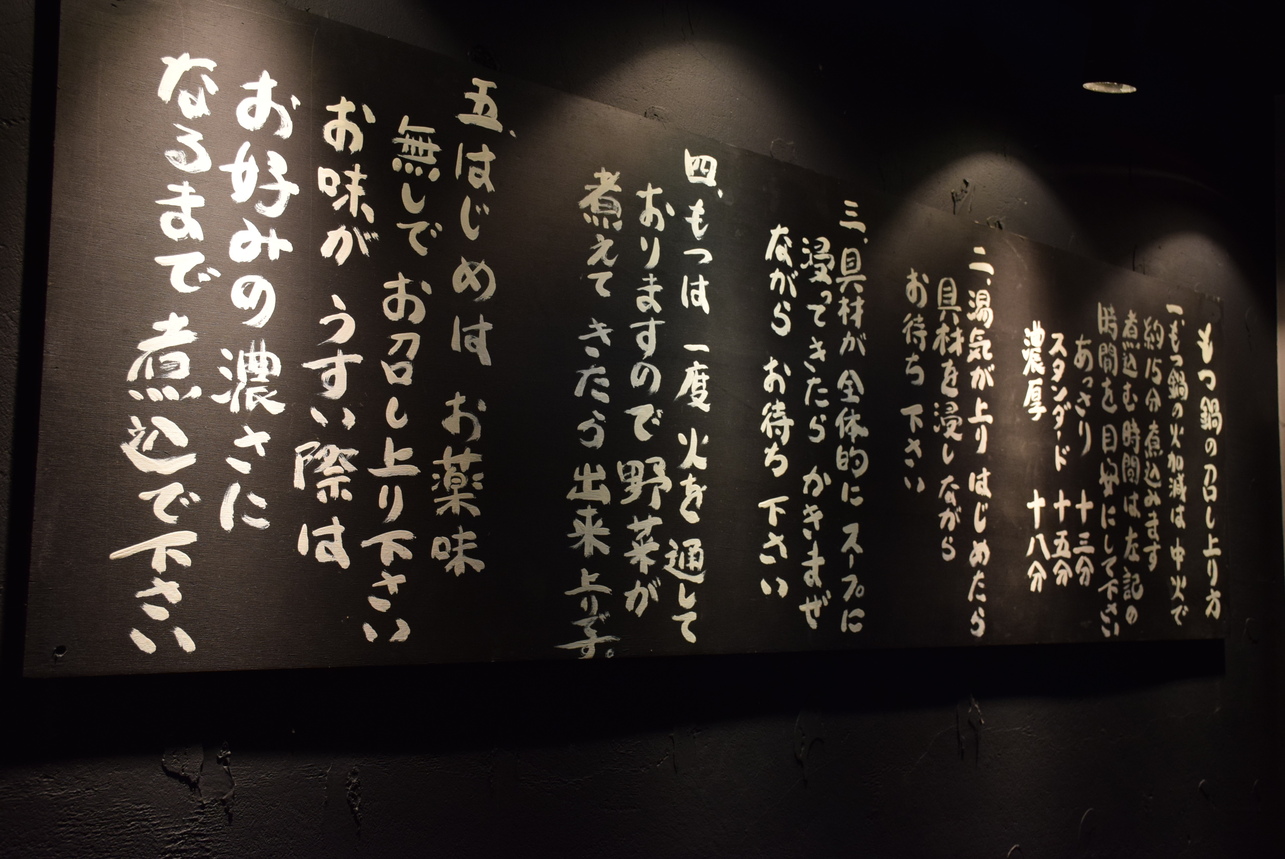 もつ鍋の召し上り方
一、もつ鍋の火加減は中火で
約15分煮込みます
煮込む時間は左記の
時間を目安にして下さい
あっさり 十三分
スタンダード 十五分
濃厚 十八分
二、湯気が上りはじめたら
具材を浸しながら
お待ち下さい
三、具材が全体的にスープに
浸ってきたら かきまぜ
ながら お待ち下さい
四、もつは 一度火を通して
おりますので 野菜が
煮えて きたら 出来上りです。
五、はじめは お薬味
無しで お召し上り下さい
お味が うすい際は
お好みの濃さに
なるまで煮込で下さい